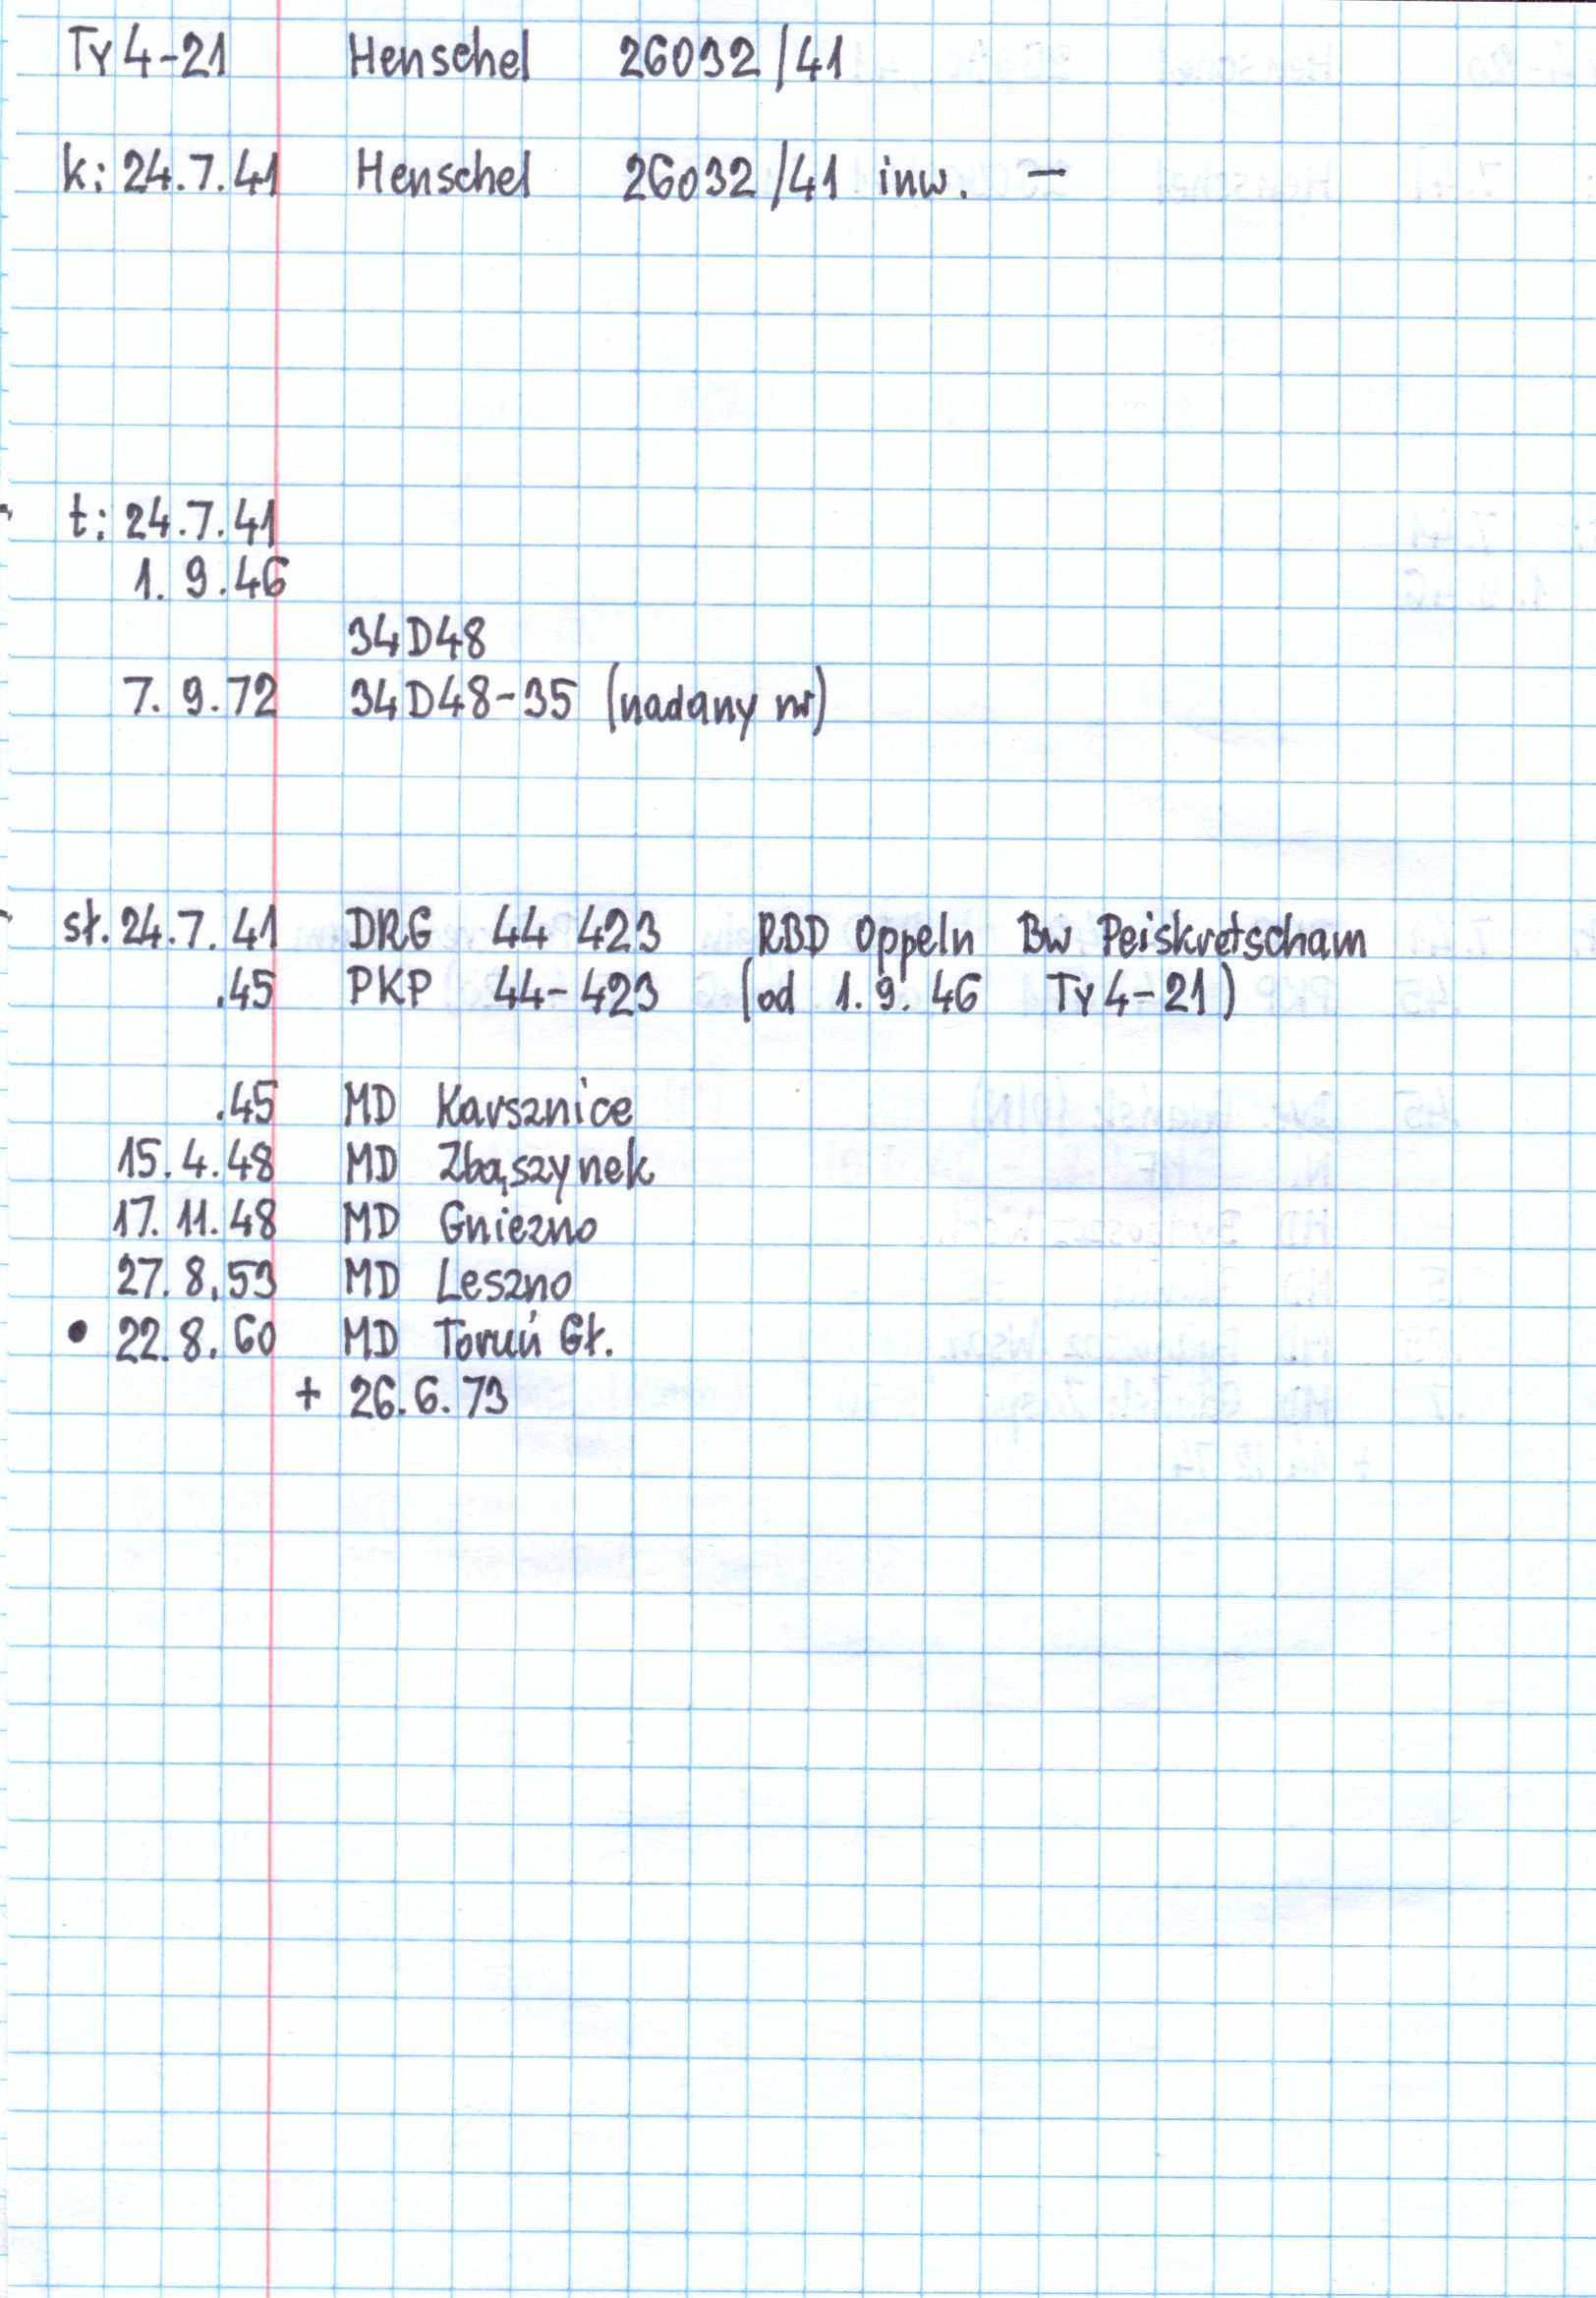 Ty4-21 Henschel 26032/41
k: 24.7.41 Henschel 26032/41 inw. –
t: 24.7.41
1. 9.46
34D48
7. 9.72 34D48-35 (nadany nr)
sł. 24.7.41 DRG 44 423 RBD Oppeln Bw Peiskretscham
.45 PKP 44-423 (od 1.9.46 Ty4-21)
.45 MD Karsznice
15.4.48 MD Zbąszynek
17.11.48 MD Gniezno
27.8.53 MD Leszno
• 22.8.60 MD Toruń Gł.
+ 26.6.73